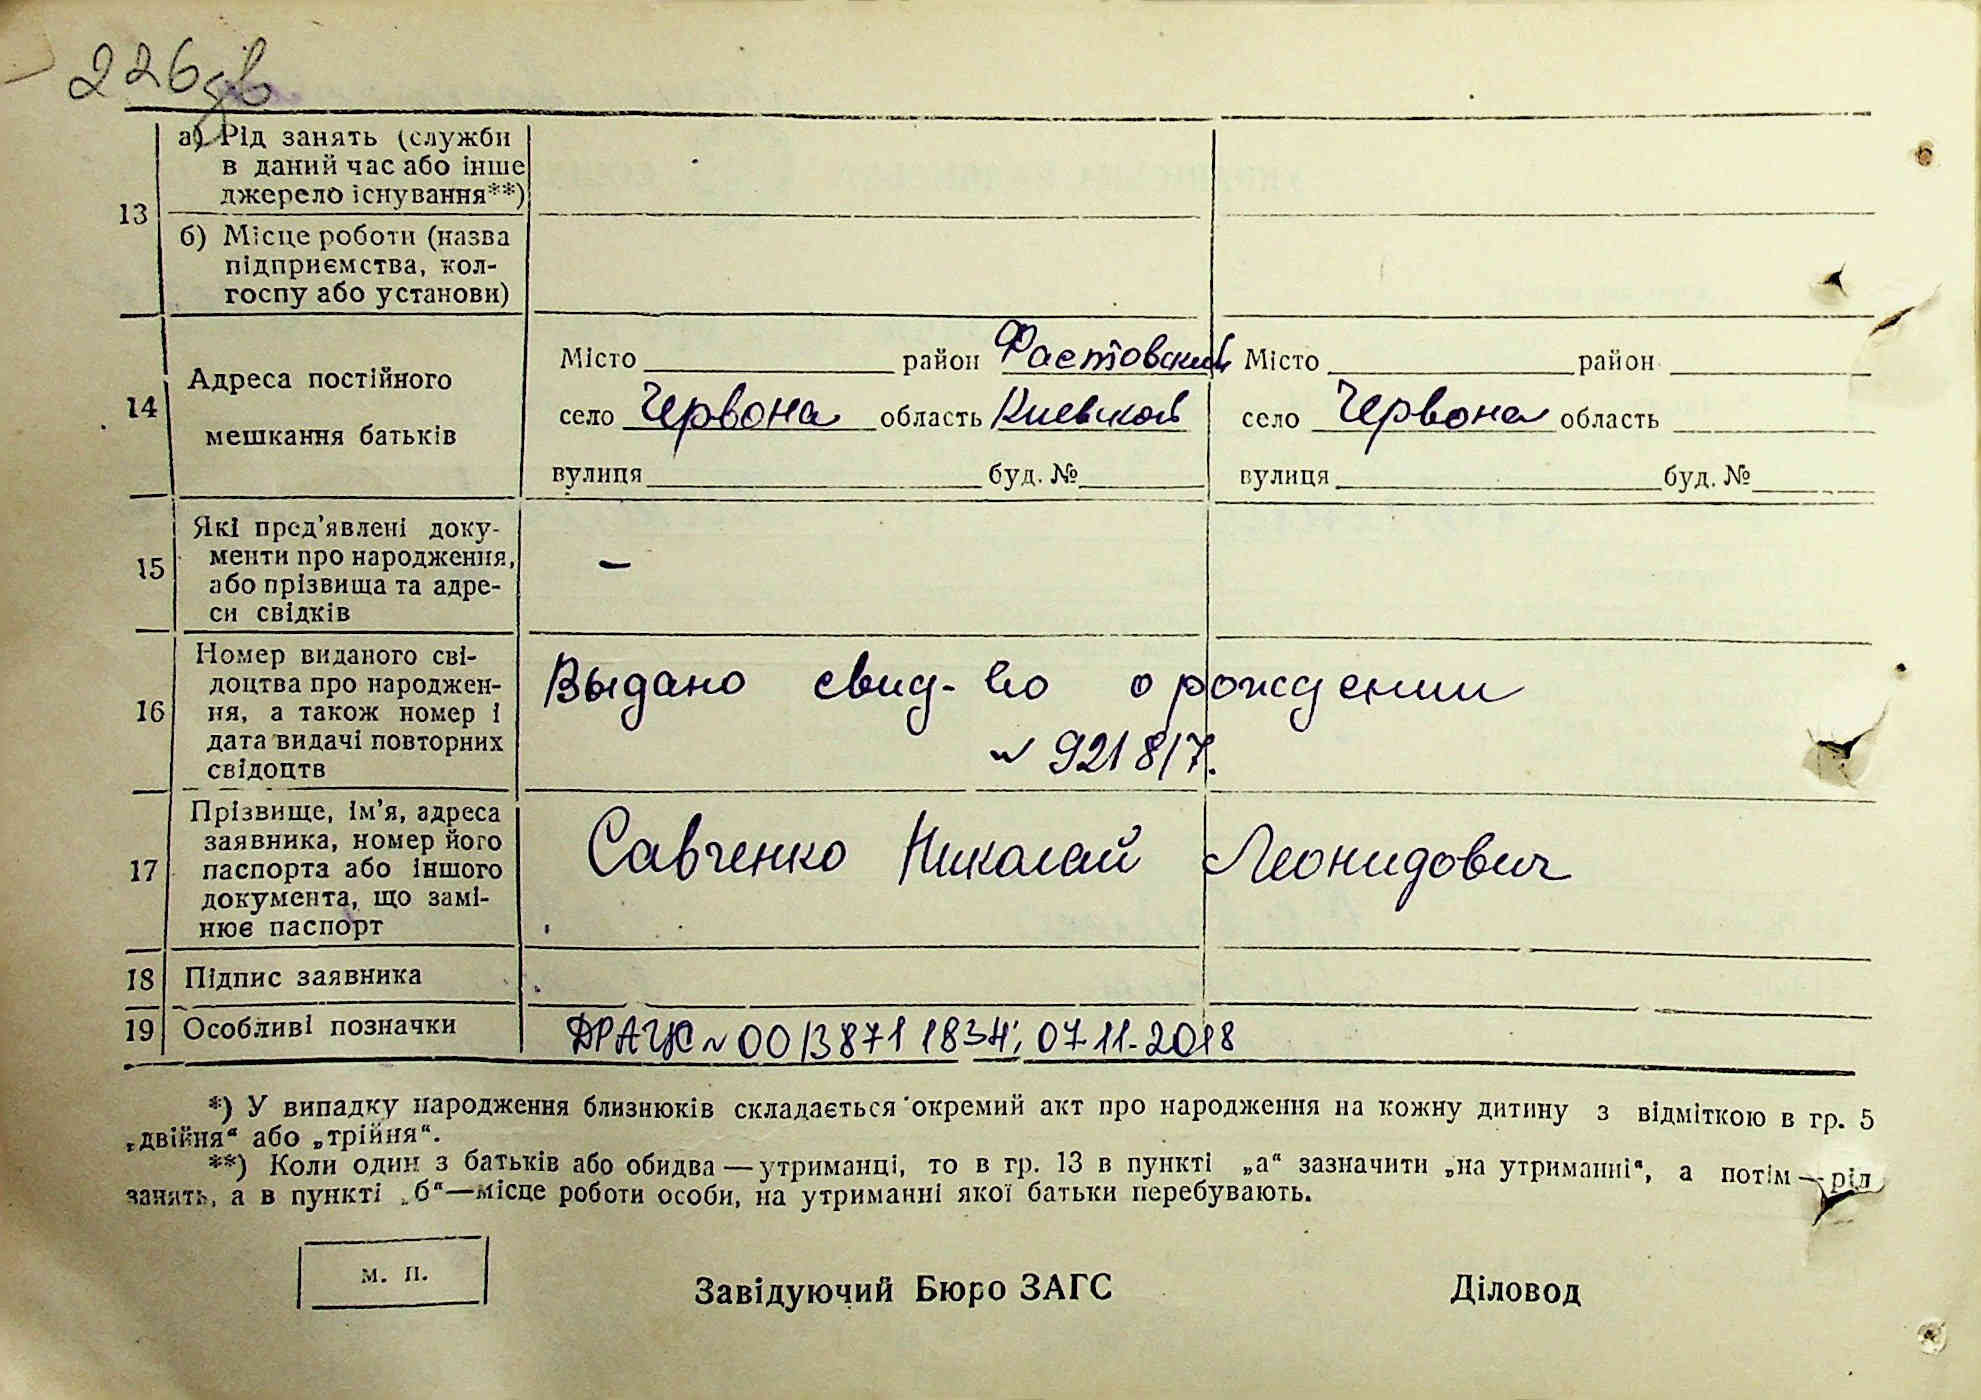 226зв
13
а) Рід занять (служби
в даний час або інше
джерело існування**)
б) Місце роботи (назва
підприємства, кол-
госпу або установи)
14
Адреса постійного
мешкання батьків
Місто район Фастовский
село Червона область Киевской
вулиця буд. №
Місто район
село Червона область
вулиця буд. №
15
Які пред’явлені доку-
менти про народження,
або прізвища та адре-
си свідків
–
16
Номер виданого сві-
доцтва про народжен-
ня, а також номер і
дата видачі повторних
свідоцтв
Выдано свид-во о рождении
№ 921817.
17
Прізвище, ім’я, адреса
заявника, номер його
паспорта або іншого
документа, що замі-
нює паспорт
Савченко Николай Леонидович
18 Підпис заявника
19 Особливі позначки
ДРАЦС № 00138711834; 07.11.2018
*) У випадку народження близнюків складається окремий акт про народження на кожну дитину з відміткою в гр. 5
„двійня“ або „трійня“.
**) Коли один з батьків або обидва—утриманці, то в гр. 13 в пункті „а“ зазначити „на утриманні“, а потім—рід
занять, а в пункті „б“—місце роботи особи, на утриманні якої батьки перебувають.
м. п.
Завідуючий Бюро ЗАГС
Діловод